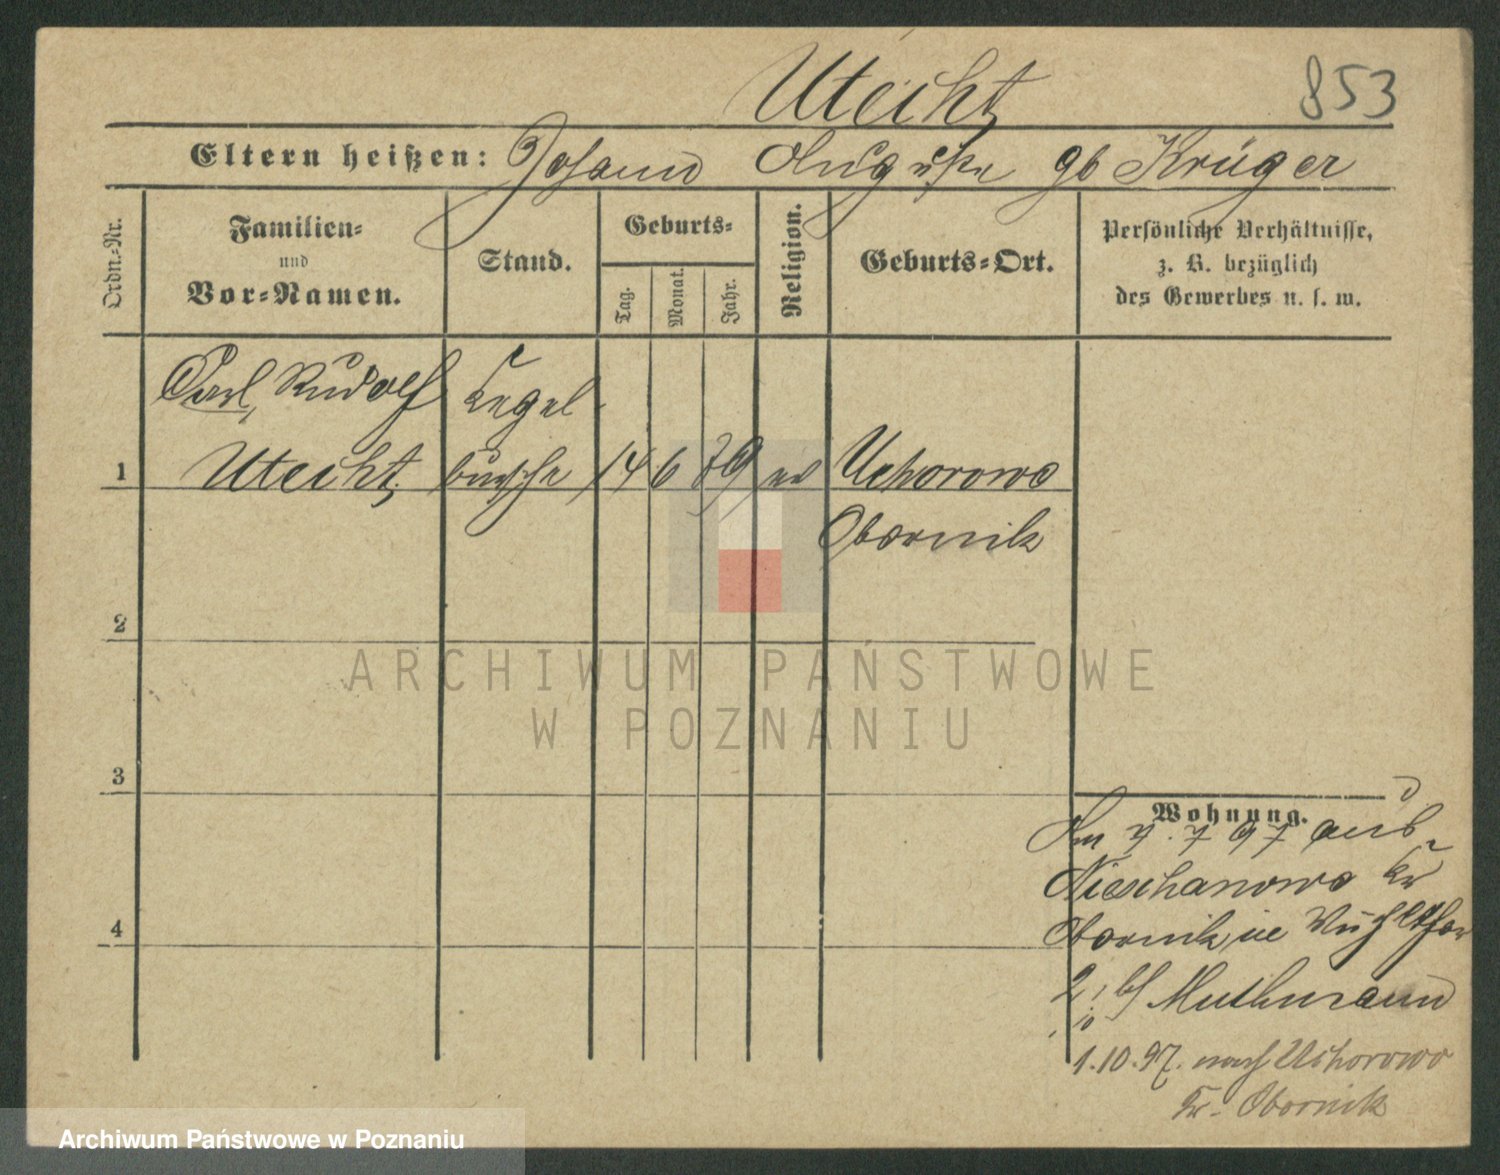 Utecht
853
Eltern heißen: Johann Auguste gb Krüger
Ordn.-Nr.
Familien-
und
Vor-Namen.
Stand.
Geburts-
Tag.
Monat.
Jahr.
Religion.
Geburts-Ort.
Persönliche Verhältnisse,
z. B. bezüglich
des Gewerbes u. s. w.
Carl, Rudolf Kegel
1 Utecht bursche 14 6 79 ev Uchorowo
Obornik
2
3
4
Wohnung.
Am 7. 7 97 aus
Nieschanowo Kr
Obornik in
2 bei Muthmann
1.10.97. nach Uchorowo
Kr. Obornik
ARCHIWUM PAŃSTWOWE
W POZNANIU
Archiwum Państwowe w Poznaniu